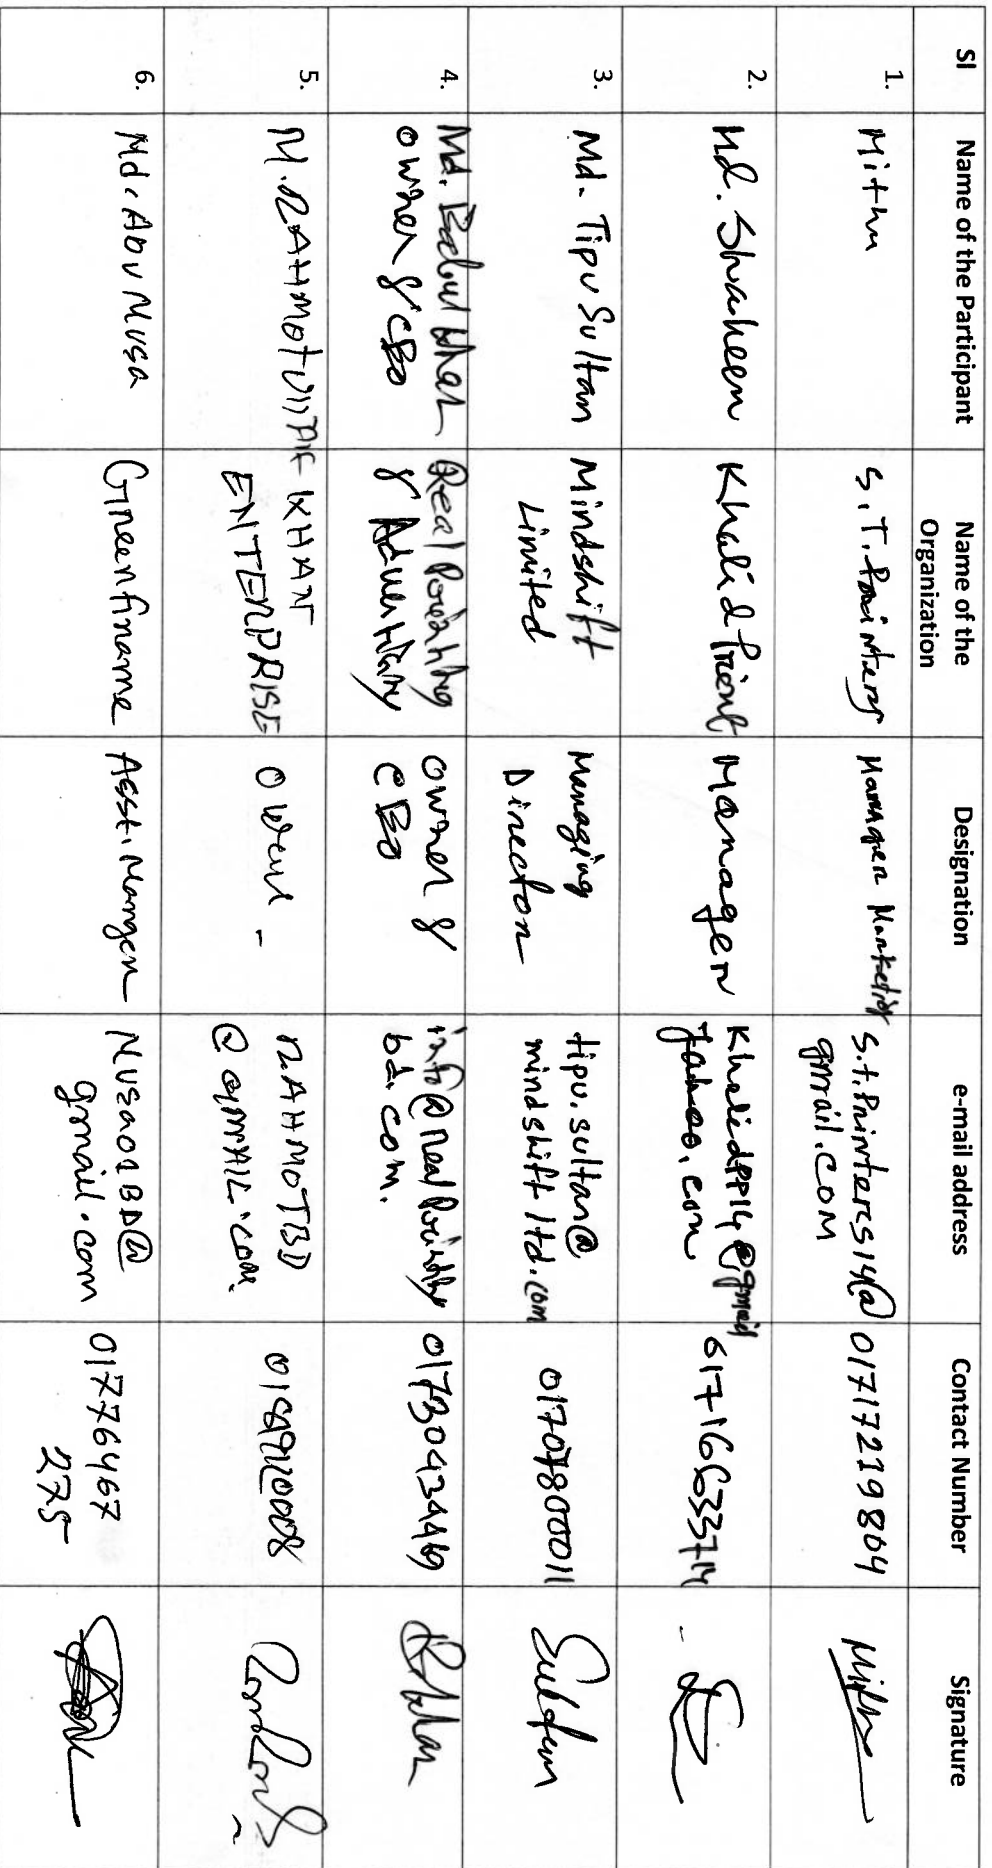 SI
Name of the Participant
Name of the
Organization
Designation
e-mail address
Contact Number
Signature
1.
Mithu
S.T. Printers
Manager Marketing
s.t.Printers14@
gmail.com
01717219804
2.
Md. Shaheen
Khalid Print
Manager
Khalidpp14@gmail
yahoo.com
3.
Md. Tipu Sultan
Mindshift
Limited
Managing
Director
tipu.sultan@
mindshift ltd.com
01707800011
4.
Md. Babul Khan
owner & CEO
Real Printing
& Advertising
owner &
CEO
info@real Printing
bd.com.
5.
KHAN
ENTERPRISE
Owner -
RAHMOTBD
@gmAIL.com.
6.
Md. Abu Musa
Greenfiname
Asst. Manger
gmail.com
01776467
275